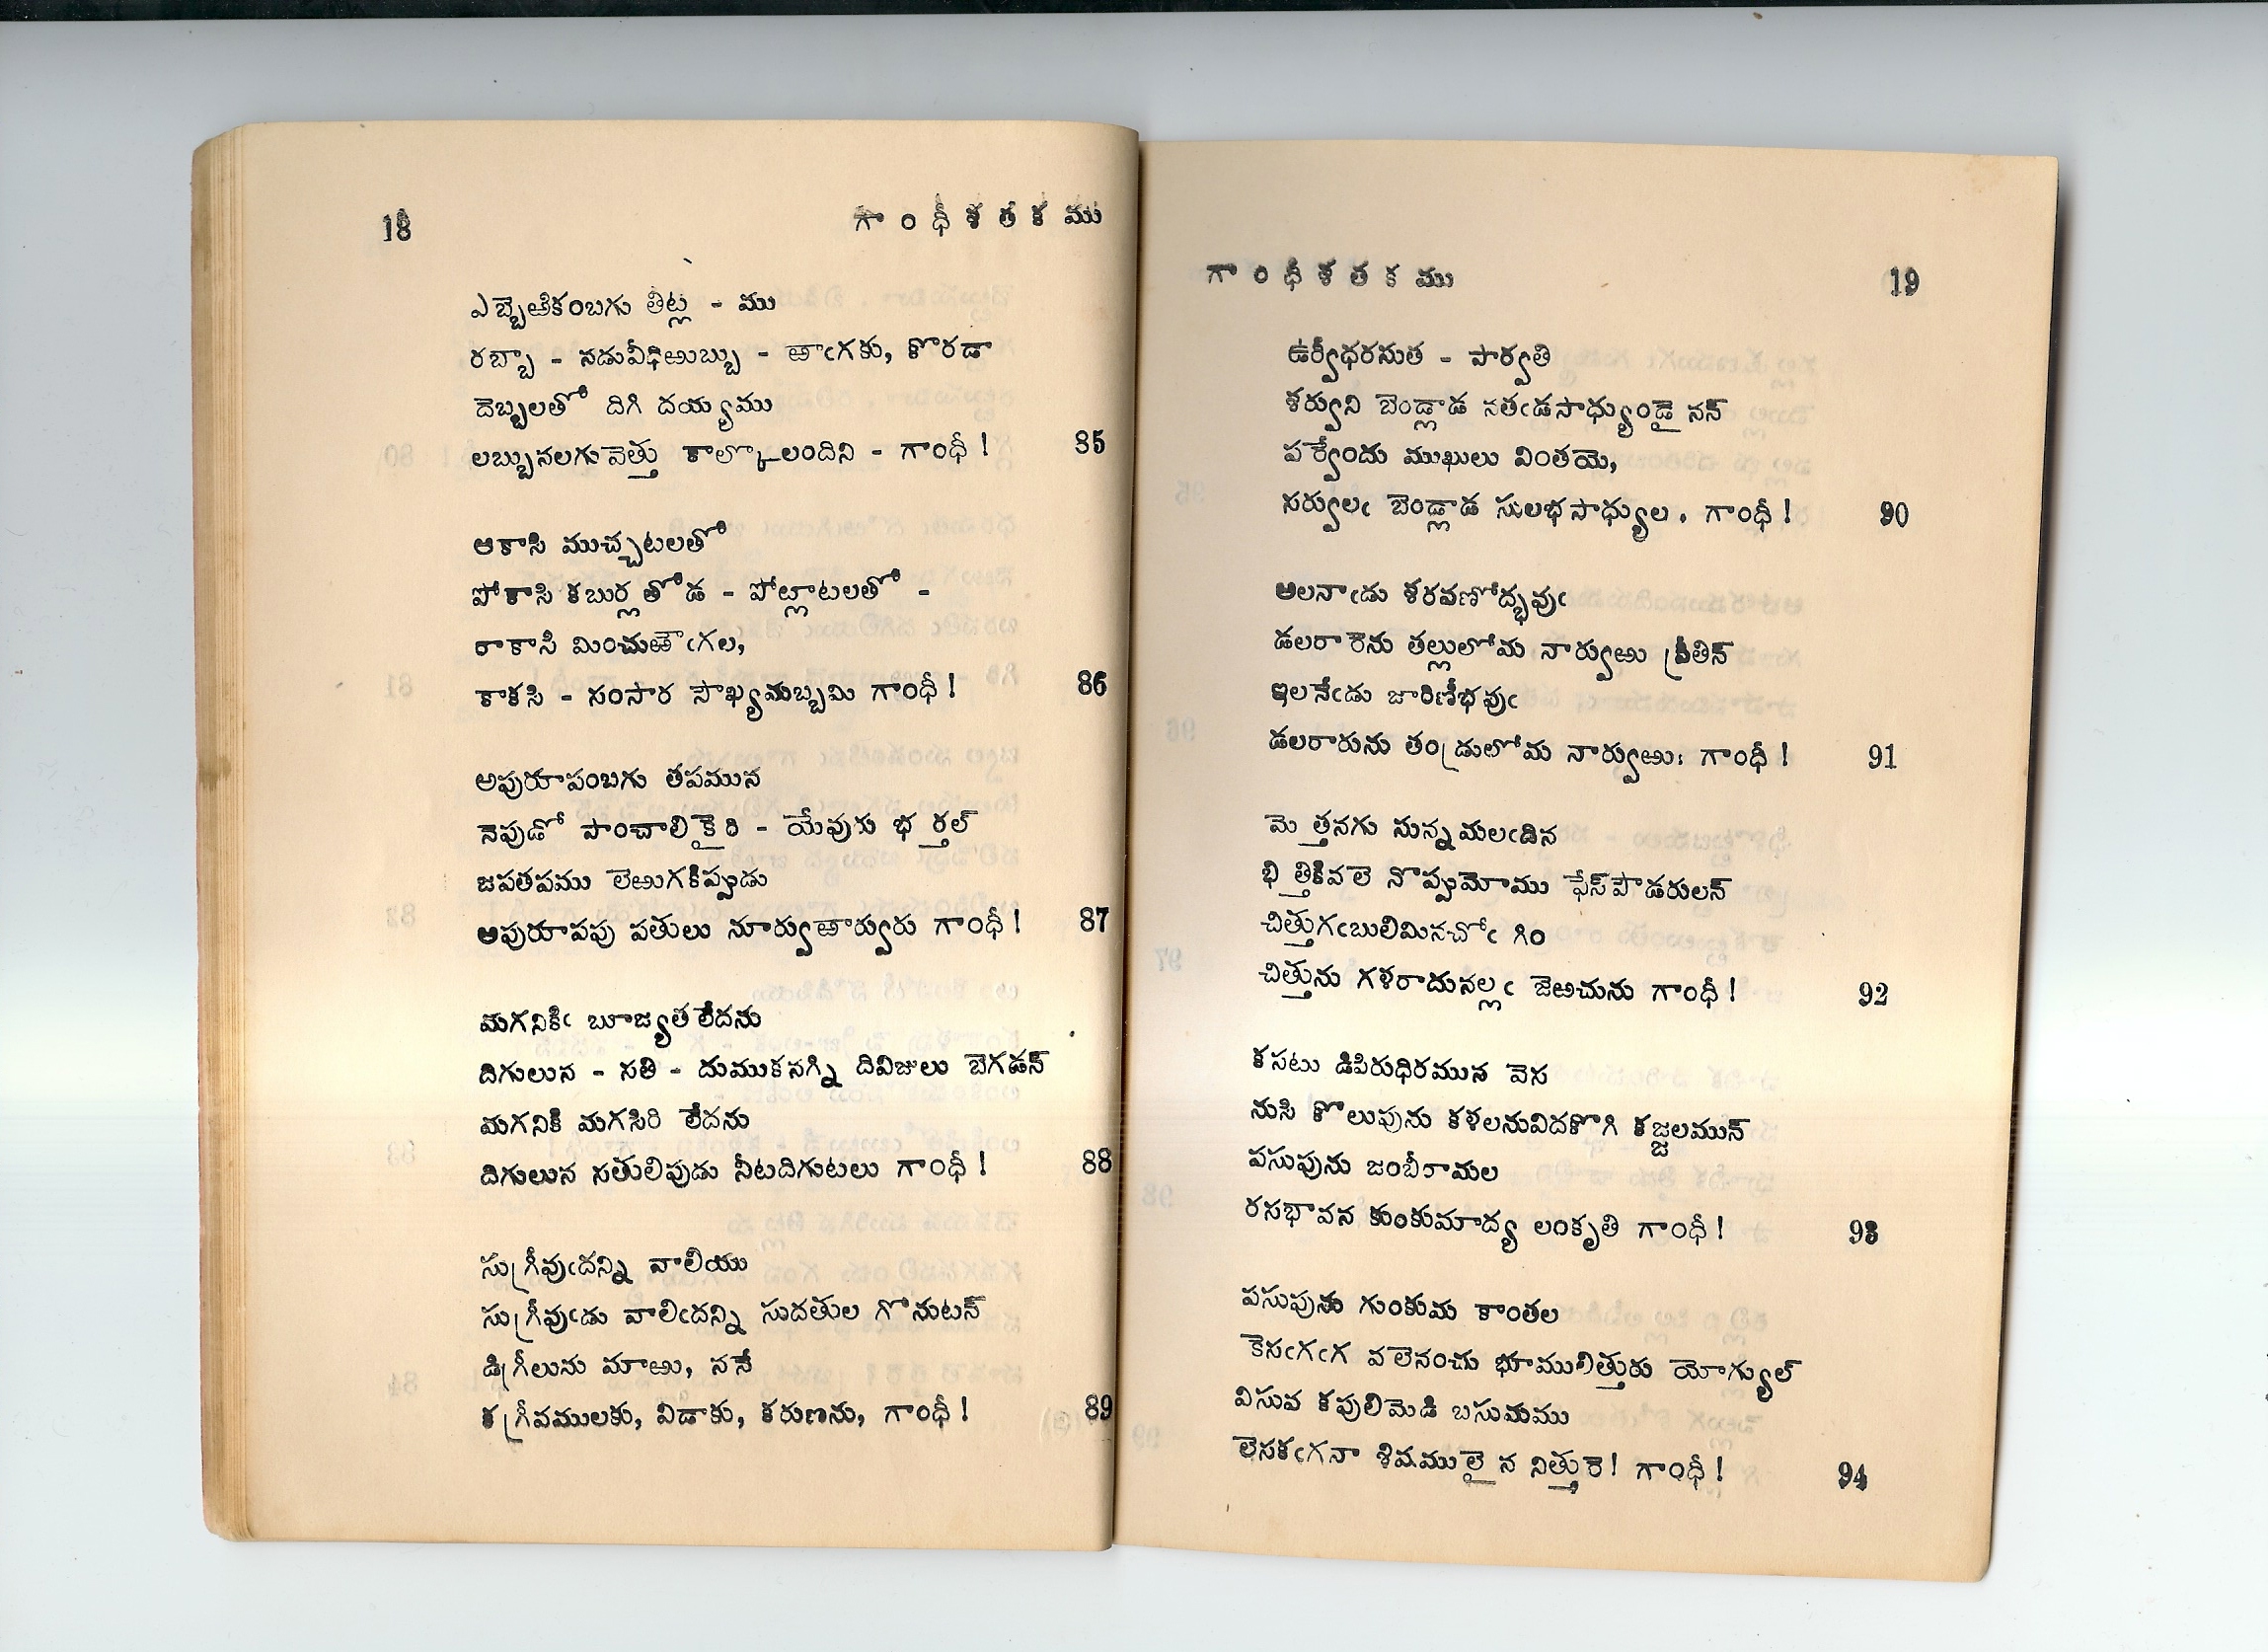 18
గాంధీశతకము
ఎబ్బెఱికంబగు తిట్ల - ము
రబ్బా - నడువీథిఱుబ్బు - ఱాఁగకు, కొరడా
దెబ్బలతో దిగి దయ్యము
లబ్బునలగువెత్తు కాల్కొలందిని - గాంధీ! 85
ఆకాసి ముచ్చటలతో
పోకాసి కబుర్లతోడ - పోట్లాటలతో -
రాకాసి మించుఱౌఁగల,
కాకసి - సంసార సౌఖ్యమబ్బమి గాంధీ! 86
అపురూపంబగు తపమున
నెపుడో పాంచాలికైరి - యేవురు భర్తల్
జపతపము లెఱుగకిప్పుడు
అపురూపపు పతులు నూర్వుఱార్వురు గాంధీ! 87
మగనికిఁ బూజ్యతలేదను
దిగులున - సతి - దుముకనగ్ని దివిజులు బెగడన్
మగనికి మగసిరి లేదను
దిగులున సతులిపుడు నీటదిగుటలు గాంధీ! 88
సుగ్రీవుఁదన్ని వాలియు
సుగ్రీవుఁడు వాలిఁదన్ని సుదతుల గొనుటన్
డిగ్రీలును మాఱు, ననే
కగ్రీవములకు, విడాకు, కరుణను, గాంధీ! 89
గాంధీశతకము
19
ఉర్వీధరసుత - పార్వతి
శర్వుని బెండ్లాడ నతఁడసాధ్యుండై నన్
పర్వేందు ముఖులు వింతయె,
సర్వులఁ బెండ్లాడ సులభసాధ్యుల. గాంధీ! 90
అలనాఁడు శరవణోద్భవుఁ
డలరారెను తల్లులోమ నార్వుఱు ప్రీతిన్
ఇలనేఁడు జారిణీభవుఁ
డలరారును తండ్రులోమ నార్వుఱు: గాంధీ! 91
మెత్తనగు సున్నమలఁడిన
భిత్తికివలె నొప్పుమోము ఫేస్‌పౌడరులన్
చిత్తుగఁబులిమినచోఁ గిం
చిత్తును గళరాదునల్లఁ జెఱచును గాంధీ! 92
కసటు డిపిరుధిరమున వెస
నుసి కొలుపును కళలనువిదకొగి కజ్జలమున్
పసుపును జంబీరామల
రసభావన కుంకుమాద్య లంకృతి గాంధీ! 93
పసుపును గుంకుమ కాంతల
కెసఁగఁగ వలెనంచు భూములిత్తురు యోగ్యుల్
విసువ కపులిమెడి బసుమము
లెసకఁగనా శిషములై న నిత్తురె! గాంధీ! 94